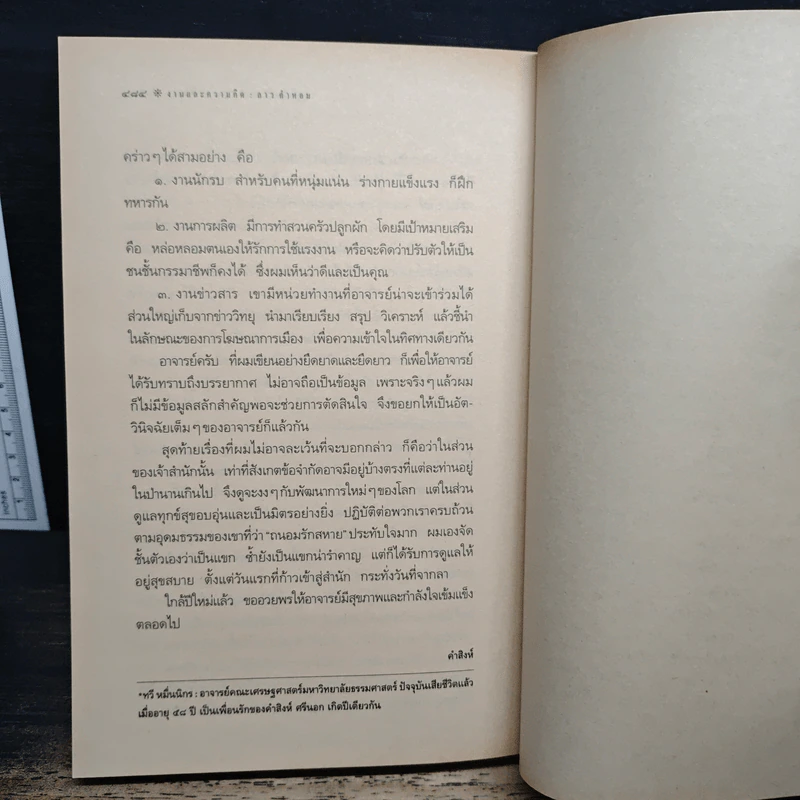 ๔๘๔ ❊ งานและความคิด : ลาว คำหอม
คร่าวๆ ได้สามอย่าง คือ
๑. งานนักรบ สำหรับคนที่หนุ่มแน่น ร่างกายแข็งแรง ก็ฝึก
ทหารกัน
๒. งานการผลิต มีการทำสวนครัวปลูกผัก โดยมีเป้าหมายเสริม
คือ หล่อหลอมตนเองให้รักการใช้แรงงาน หรือจะคิดว่าปรับตัวให้เป็น
ชนชั้นกรรมาชีพก็คงได้ ซึ่งผมเห็นว่าดีและเป็นคุณ
๓. งานข่าวสาร เขามีหน่วยทำงานที่อาจารย์น่าจะเข้าร่วมได้
ส่วนใหญ่เก็บจากข่าววิทยุ นำมาเรียบเรียง สรุป วิเคราะห์ แล้วชี้นำ
ในลักษณะของการโฆษณาการเมือง เพื่อความเข้าใจในทิศทางเดียวกัน
อาจารย์ครับ ที่ผมเขียนอย่างยืดยาดและยืดยาว ก็เพื่อให้อาจารย์
ได้รับทราบถึงบรรยากาศ ไม่อาจถือเป็นข้อมูล เพราะจริงๆ แล้วผม
ก็ไม่มีข้อมูลสลักสำคัญพอจะช่วยการตัดสินใจ จึงขอยกให้เป็นอัต-
วินิจฉัยเต็มๆ ของอาจารย์ก็แล้วกัน
สุดท้ายเรื่องที่ผมไม่อาจละเว้นที่จะบอกกล่าว ก็คือว่าในส่วน
ของเจ้าสำนักนั้น เท่าที่สังเกตข้อจำกัดอาจมีอยู่บ้างตรงที่แต่ละท่านอยู่
ในป่านานเกินไป จึงดูจะงงๆ กับพัฒนาการใหม่ๆ ของโลก แต่ในส่วน
ดูแลทุกข์สุขอบอุ่นและเป็นมิตรอย่างยิ่ง ปฏิบัติต่อพวกเราครบถ้วน
ตามอุดมธรรมของเขาที่ว่า "ถนอมรักสหาย" ประทับใจมาก ผมเองจัด
ชั้นตัวเองว่าเป็นแขก ซ้ำยังเป็นแขกน่ารำคาญ แต่ก็ได้รับการดูแลให้
อยู่สุขสบาย ตั้งแต่วันแรกที่ก้าวเข้าสู่สำนัก กระทั่งวันที่จากลา
ใกล้ปีใหม่แล้ว ขออวยพรให้อาจารย์มีสุขภาพและกำลังใจเข้มแข็ง
ตลอดไป
คำสิงห์
*ทวี หมื่นนิกร : อาจารย์คณะเศรษฐศาสตร์มหาวิทยาลัยธรรมศาสตร์ ปัจจุบันเสียชีวิตแล้ว
เมื่ออายุ ๕๘ ปี เป็นเพื่อนรักของคำสิงห์ ศรีนอก เกิดปีเดียวกัน
inches